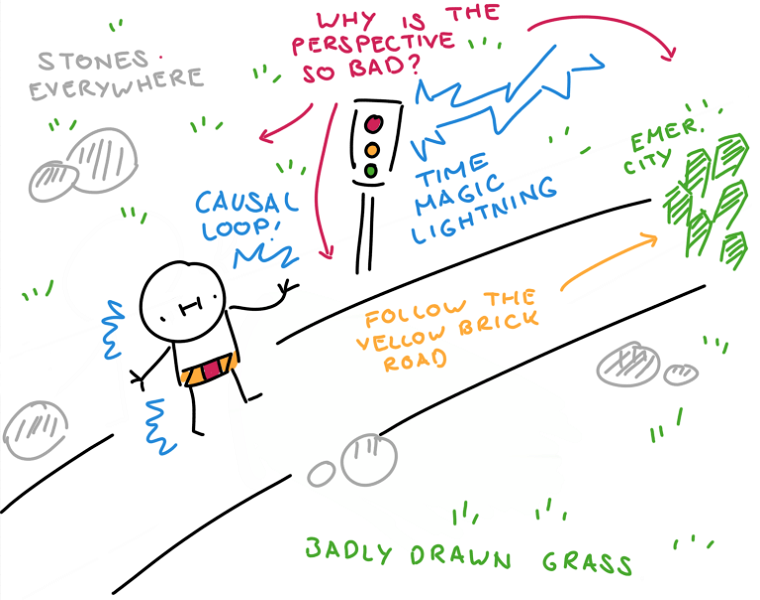 WHY IS THE
PERSPECTIVE
SO BAD?
STONES
EVERYWHERE
EMER.
CITY
TIME
MAGIC
LIGHTNING
CAUSAL
LOOP!
FOLLOW THE
YELLOW BRICK
ROAD
BADLY DRAWN GRASS